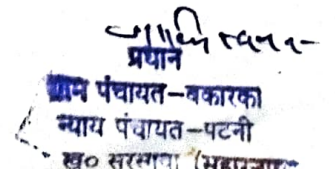 प्रधान
ग्राम पंचायत-बकारका
न्याय पंचायत-पटनी
ख० सरसावा